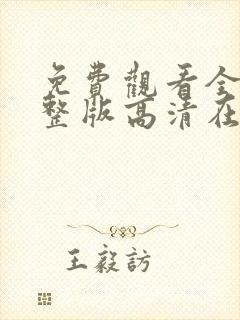 免費觀看全
整版高清在
王毅訪